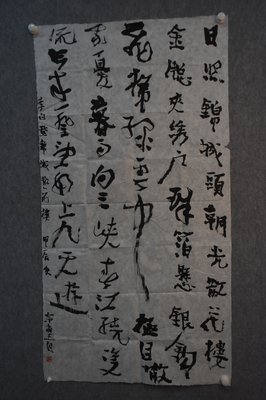 日照錦城頭朝光散花樓
金窗夾綉户珠箔懸銀鉤
飛梯緑雲中極目散
我憂暮雨向三峽春江繞雙
流今来一登望如上九天遊
李白登錦城散花樓甲辰